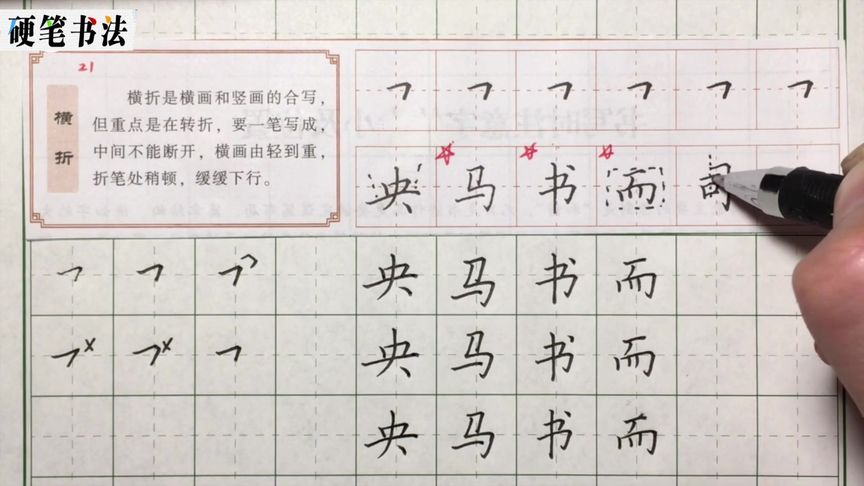 硬笔书法
21
横折
横折是横画和竖画的合写，
但重点是在转折，要一笔写成，
中间不能断开，横画由轻到重，
折笔处稍顿，缓缓下行。
央 马 书 而
央 马 书 而
央 马 书 而
央 马 书 而